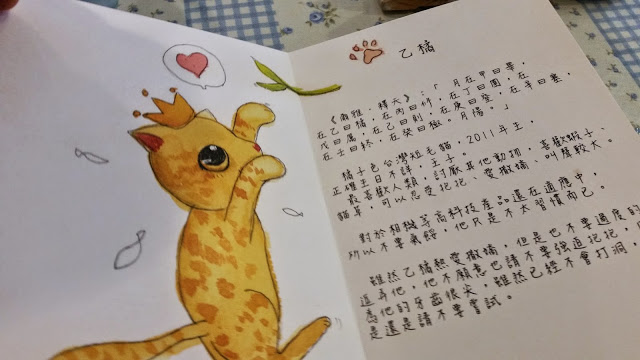 乙橘
《爾雅．釋天》：「月在甲曰畢，
在乙曰橘，在丙曰修，在丁曰圉，在
戊曰厲，在己曰則，在庚曰窒，在辛曰塞，
在壬曰終，在癸曰極。月陽。」
橘子色台灣短毛貓，2011年生，
正確生日不詳，王子。
最喜歡人類，討厭其他動物，喜歡蝦子、
貓草，可以忍受抱抱、愛撒嬌、叫聲較大。
對於相機等高科技產品還在適應中，
所以不要氣餒，他只是不太習慣而已。
雖然乙橘熱愛撒嬌，但是也不要過度的
逗弄他，他不願意也請不要強迫抱抱，
為他的牙齒很尖，雖然已經不會打洞，
是還是請不要嘗試。